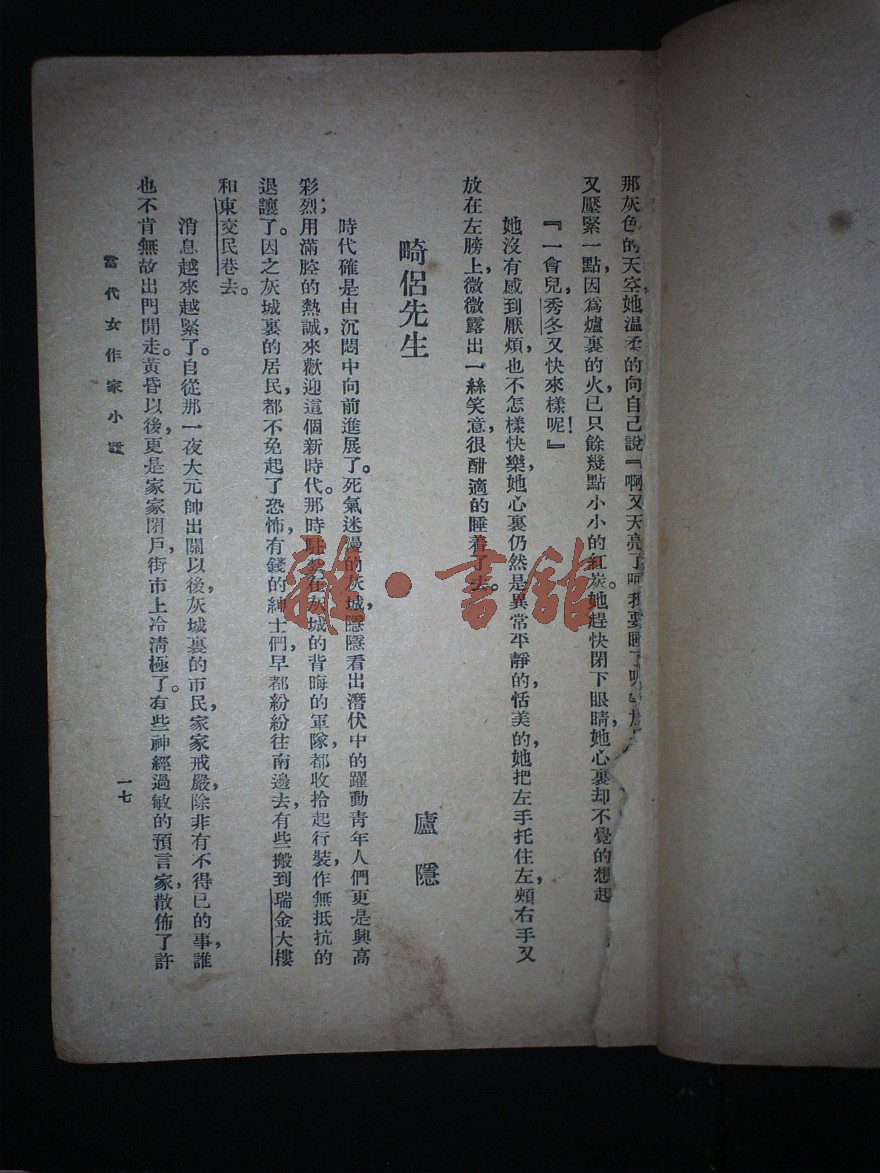 那灰色的天空,她温柔的向自己說『啊又天亮了呵我要睡了
又壓緊一點,因爲爐裏的火已只餘幾點小小的紅炭。她趕快閉下眼睛,她心裏却不覺的想起
『一會兒,秀冬又快來樣呢!』
她沒有感到厭煩,也不怎樣快樂,她心裏仍然是異常平靜的,恬美的,她把左手托住左頰,右手又
放在左膀上,微微露出一絲笑意,很酣適的睡着了去。
畸侶先生
廬隱
時代確是由沉悶中向前進展了。死氣迷漫的灰城,隱隱看出潛伏中的躍動,青年人們更是興高
彩烈;用滿腔的熱誠,來歡迎這個新時代。那時駐紮在灰城的背晦的軍隊,都收拾起行裝,作無抵抗的
退讓了。因之灰城裏的居民,都不免起了恐怖,有錢的紳士們,早都紛紛往南邊去,有些搬到瑞金大樓
和東交民巷去。
消息越來越緊了。自從那一夜大元帥出關以後,灰城裏的市民,家家戒嚴,除非有不得已的事,誰
也不肯無故出門閒走。黃昏以後,更是家家閉戶,街市上冷清極了。有些神經過敏的預言家,散佈了許
當代女作家小說
一七
雜·書館